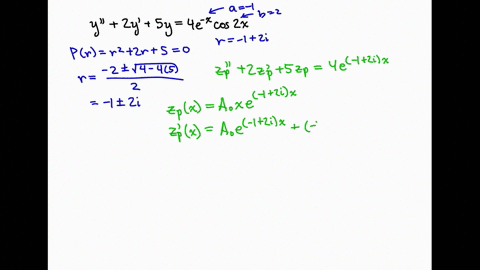 a=-1
y'' + 2y' + 5y = 4e^{-x} cos 2x
b=2
P(r) = r² + 2r + 5 = 0
r = -1 + 2i
r = \frac{-2 ± \sqrt{4-4(5)}}{2}
= -1 ± 2i
z_p'' + 2z_p' + 5z_p = 4e^{(-1+2i)x}
z_p(x) = A_0 x e^{(-1+2i)x}
z_p'(x) = A_0 e^{(-1+2i)x} + (-